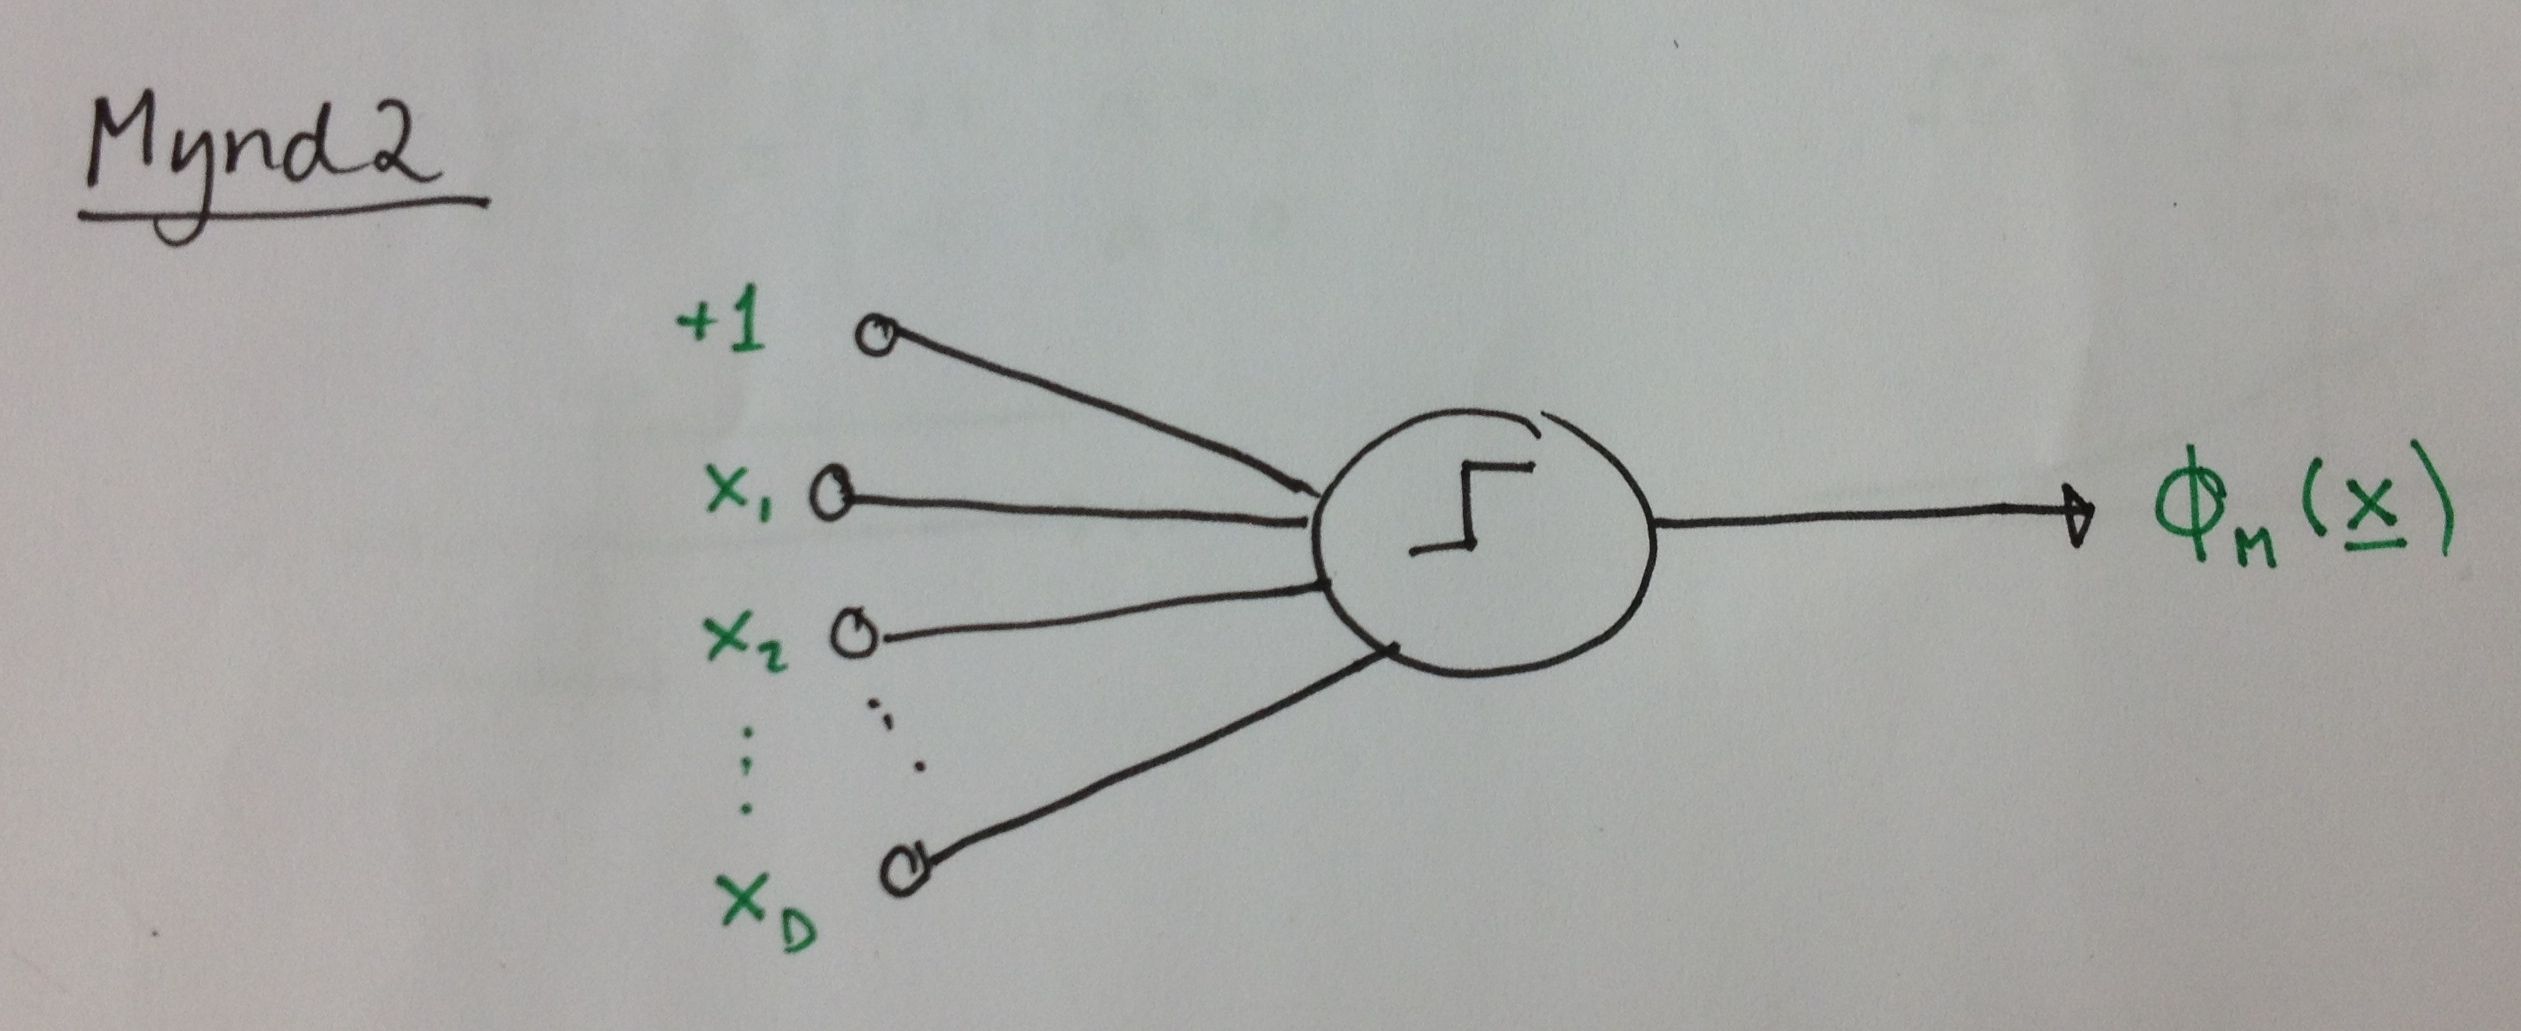 Mynd 2
+1
x₁
x₂
⋮
x_D
ϕ_M(x̲)